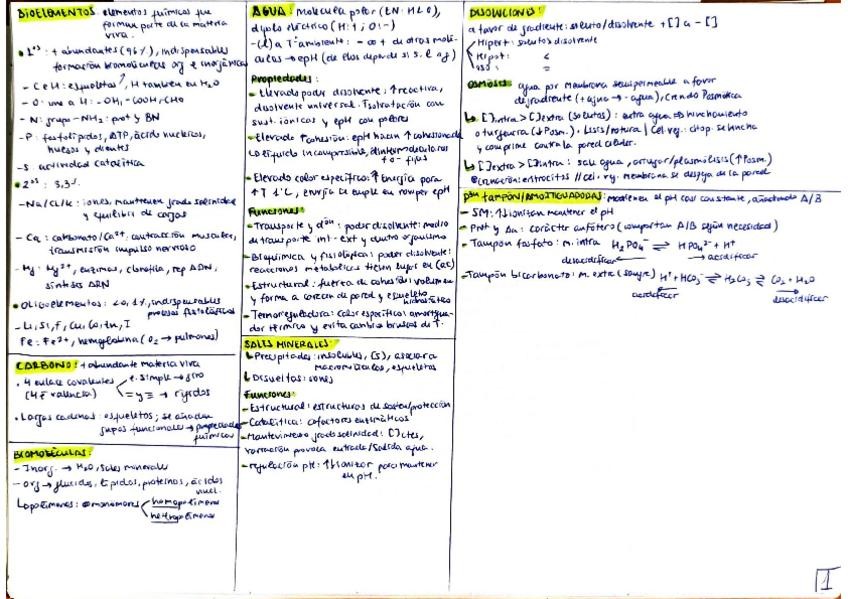 BIOELEMENTOS: elementos químicos que
forman parte de la materia
viva.
• 1os: + abundantes (96%), indispensables
formación biomoléculas org e inorgánicas
- C e H: esqueletos, H también en H2O
- O: une a H: -OH, -COOH, -CHO
- N: grupo -NH2: prot y BN
- P: fosfolípidos, ATP, ácidos nucleicos,
huesos y dientes
- S actividad catalítica
• 2os: 3,3%
- Na/Cl/K: iones, mantienen grado salinidad
y equilibrio de cargas
- Ca: carbonato/Ca2+, contracción muscular,
transmisión impulso nervioso
- Mg: Mg2+, enzimas, clorofila, rep ADN,
síntesis ARN
• Oligoelementos: <0,1%, indispensables
procesos fisiológicos
- Li, Si, F, Cu, Co, Zn, I
Fe: Fe2+, hemoglobina (O2 → pulmones)
CARBONO: + abundante materia viva
• 4 enlace covalentes
(4 e- valencia)
e. simple → giro
= y ≡ → rígidos
• Largas cadenas: esqueletos; se añaden
grupos funcionales → propiedades
químicas
BIOMOLÉCULAS:
- Inorg. → H2O, sales minerales
- Org → glúcidos, lípidos, proteínas, ácidos
nucl.
polímeros: monómeros
homopolímeros
heteropolímeros
AGUA: molécula polar (EN: H2O),
dipolo eléctrico (H: +; O: -)
- (l) a Tª ambiente: - ∞ + de otras molé-
culas → epH (de ellos depende si s, l o g)
Propiedades:
• Elevado poder disolvente: ↑ reactiva,
disolvente universal. Solvatación con
sust. iónicas y epH con polares
• Elevada ↑ cohesión: epH hacen ↑ cohesionada
líquido incompresible, d intermoleculares
+ o - fijas
• Elevado calor específico: ↑ energía para
↑ T 1ºC, energía se emplea en romper epH
Funciones:
• Transporte y dón: poder disolvente: medio
de transporte int - ext y dentro organismo
• Bioquímica y fisiológica: poder disolvente:
reacciones metabólicas tienen lugar en (ac)
• Estructural: fuerza de cohesión: volumen
y forma a carecen de pared y esqueleto
hidrostático
• Termorreguladora: calor específico: amortigua-
dor térmico y evita cambios bruscos de T.
SALES MINERALES:
Precipitadas: insolubles, (s), asocia a
macromoléculas, esqueletos
Disueltas: iones
Funciones:
- Estructural: estructuras de sostén/protección
- Catalítica: cofactores enzimáticos
- Mantenimiento grado salinidad: [] ctes,
variación provoca entrada/salida agua.
- regulación pH: ↑↓ ionizar para mantener
el pH.
DISOLUCIONES:
a favor de gradiente: soluto/disolvente +[] a -[]
Hipert: solutos disolvente
Hipot: <
Iso: =
OSMOSIS: agua por membrana semipermeable a favor
de gradiente (+ agua → - agua), creando Posmótica
[] intra > [] extra (solutos): entra agua ⇒ hinchamiento
o turgencia (↓ Posm.). Lisis/rotura / Cel. veg.: citop. se hincha
y comprime contra la pared celular.
[] extra > [] intra: sale agua, arrugar/plasmólisis (↑ Posm.)
crenación: eritrocitos // cel. veg. membrana se despega de la pared
TAMPÓN/AMORTIGUADORAS: mantienen el pH casi constante, añadiendo A/B
- SM: ↑↓ ionizan mantener el pH
- Prot y Aa: carácter anfótero (comportan A/B según necesidad)
- Tampón fosfato: m. intra H2PO4- ⇌ HPO42- + H+
desacidificar acidificar
- Tampón bicarbonato: m. extra (sangre) H+ + HCO3- ⇌ H2CO3 ⇌ CO2 + H2O
acidificar desacidificar
1